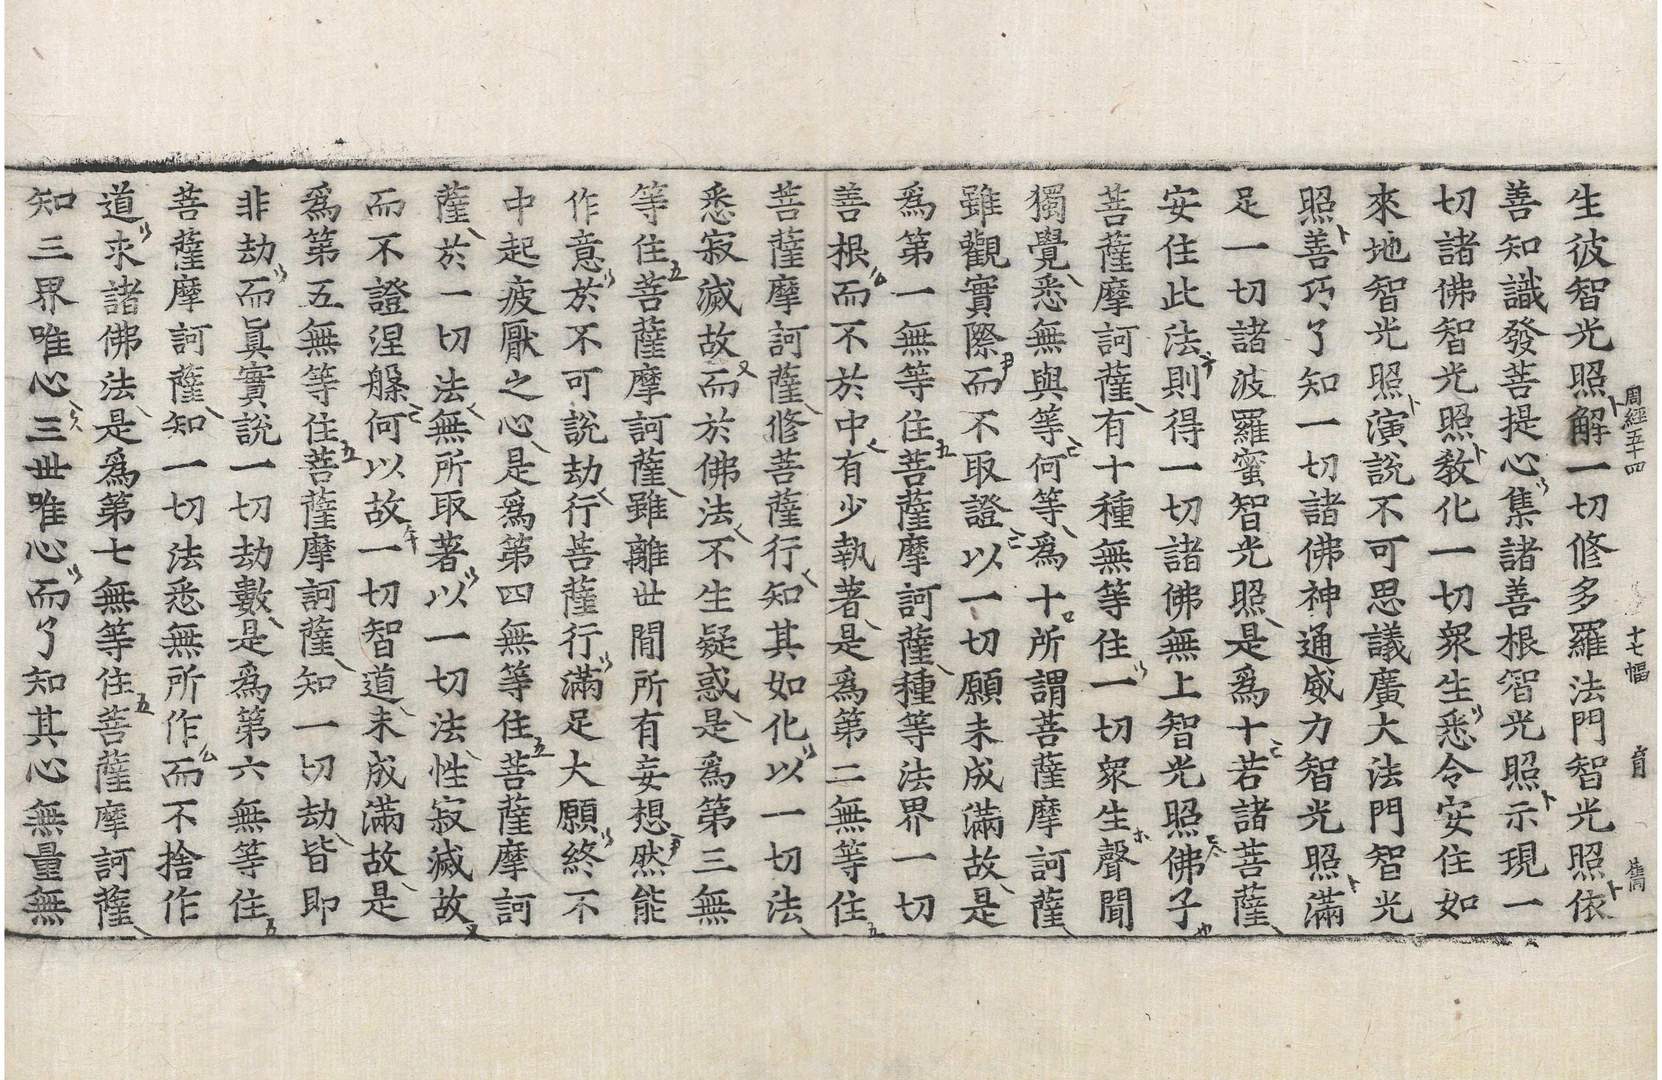 周經五十四 十七幅
生彼智光照解一切修多羅法門智光照依
善知識發菩提心集諸善根智光照示現一
切諸佛智光照教化一切衆生悉令安住如
來地智光照演說不可思議廣大法門智光
照善巧了知一切諸佛神通威力智光照滿
足一切諸波羅蜜智光照是爲十若諸菩薩
安住此法則得一切諸佛無上智光照佛子
菩薩摩訶薩有十種無等住一切衆生聲聞
獨覺悉無與等何等爲十所謂菩薩摩訶薩
雖觀實際而不取證以一切願未成滿故是
爲第一無等住菩薩摩訶薩種等法界一切
善根而不於中有少執著是爲第二無等住
菩薩摩訶薩修菩薩行知其如化以一切法
悉寂滅故而於佛法不生疑惑是爲第三無
等住菩薩摩訶薩雖離世間所有妄想然能
作意於不可說劫行菩薩行滿足大願終不
中起疲厭之心是爲第四無等住菩薩摩訶
薩於一切法無所取著以一切法性寂滅故
而不證涅槃何以故一切智道未成滿故是
爲第五無等住菩薩摩訶薩知一切劫皆即
非劫而眞實說一切劫數是爲第六無等住
菩薩摩訶薩知一切法悉無所作而不捨作
道求諸佛法是爲第七無等住菩薩摩訶薩
知三界唯心三世唯心而了知其心無量無